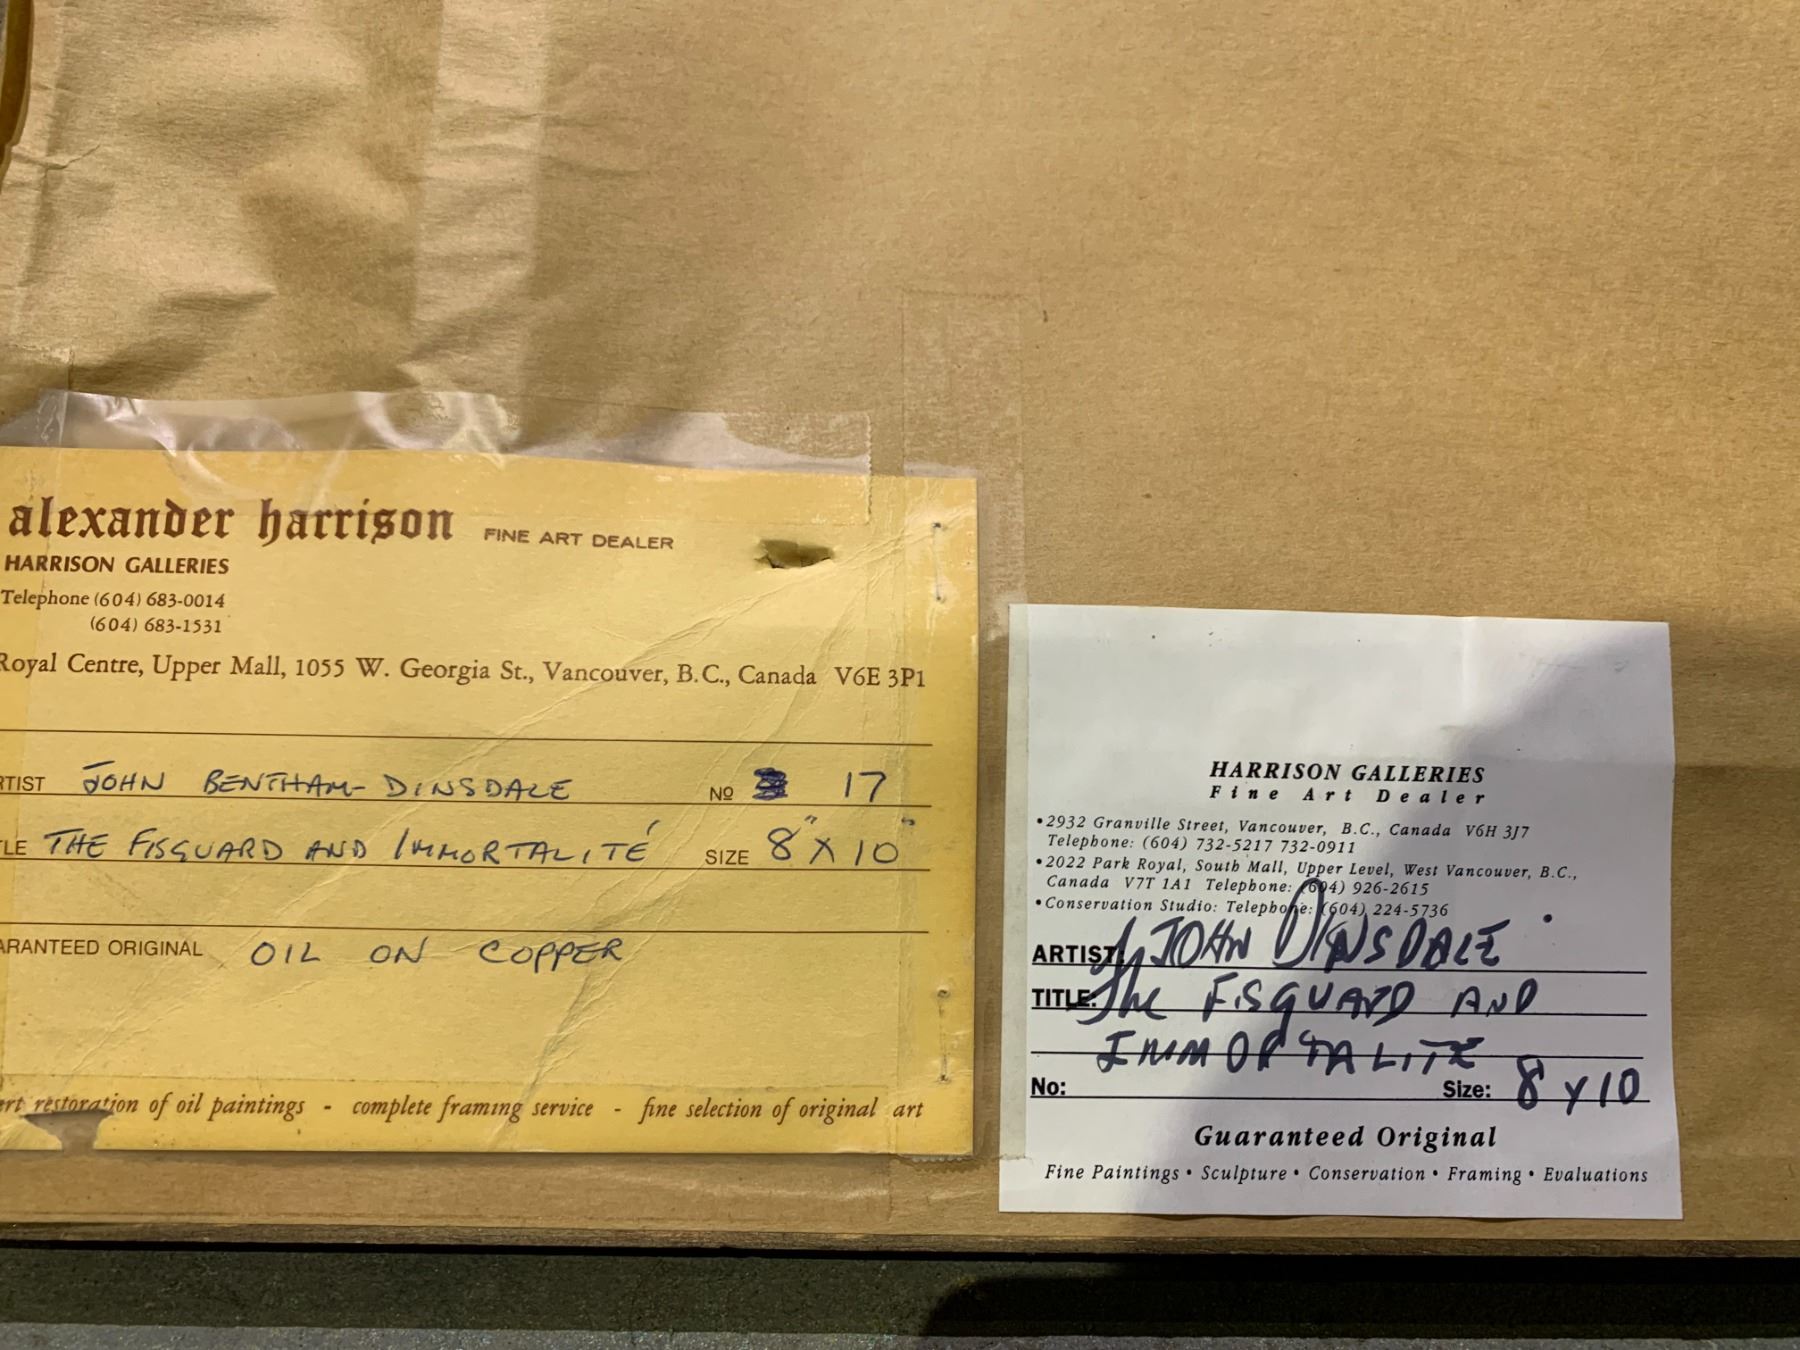 alexander harrison FINE ART DEALER
HARRISON GALLERIES
Telephone (604) 683-0014
(604) 683-1531
Royal Centre, Upper Mall, 1055 W. Georgia St., Vancouver, B.C., Canada V6E 3P1
RTIST JOHN BENTHAM-DINSDALE No 17
LE THE FISGUARD AND IMMORTALITÉ SIZE 8" X 10"
ARANTEED ORIGINAL OIL ON COPPER
ert restoration of oil paintings - complete framing service - fine selection of original art
HARRISON GALLERIES
Fine Art Dealer
•2932 Granville Street, Vancouver, B.C., Canada V6H 3J7
Telephone: (604) 732-5217 732-0911
•2022 Park Royal, South Mall, Upper Level, West Vancouver, B.C.,
Canada V7T 1A1 Telephone: (604) 926-2615
•Conservation Studio: Telephone: (604) 224-5736
ARTIST: JOHN DINSDALE
TITLE: The FISGUARD AND
IMMORTALITE
No: Size: 8 x 10
Guaranteed Original
Fine Paintings • Sculpture • Conservation • Framing • Evaluations